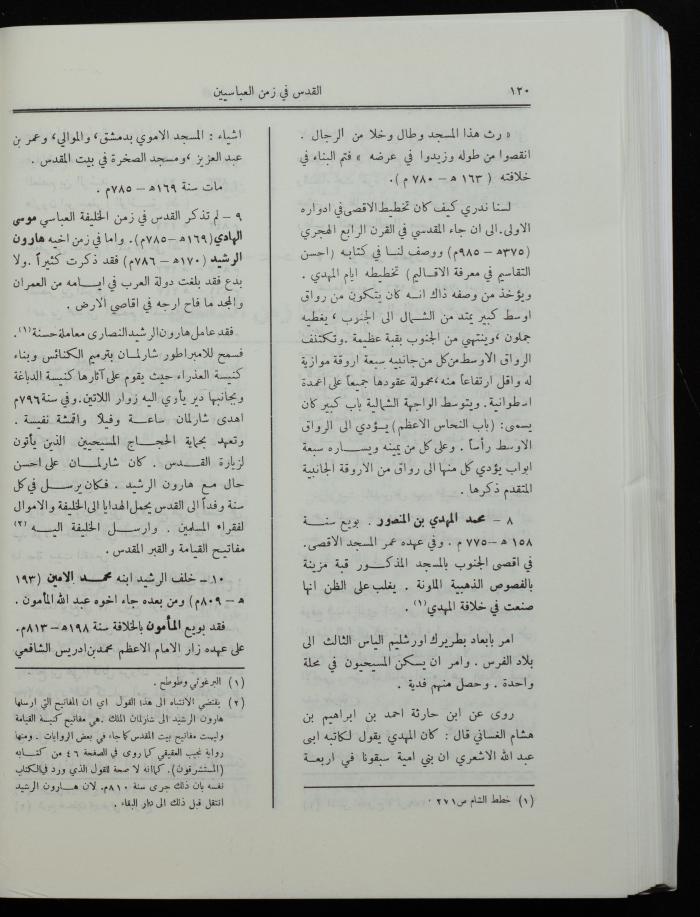 ١٢٠
القدس في زمن العباسيين
« رث هذا المسجد وطال وخلا من الرجال .
انقصوا من طوله وزيدوا في عرضه » فتم البناء في
خلافته ( ١٦٣ ه – ٧٨٠ م ) .
لسنا ندري كيف كان تخطيط الاقصى في ادواره
الاولى.الى ان جاء المقدسي في القرن الرابع الهجري
(٣٧٥ه – ٩٨٥م) ووصف لنا في كتابه (احسن
التقاسيم في معرفة الاقاليم) تخطيطه ايام المهدي .
ويؤخذ من وصفه ذاك انه كان يتكون من رواق
اوسط كبير يمتد من الشمال الى الجنوب ، يغطيه
جملون ،وينتهي من الجنوب بقبة عظيمة .وتكتنف
الرواق الاوسط من كل من جانبيه سبعة اروقة موازية
له واقل ارتفاعاً منه،محمولة عقودها جميعاً على اعمدة
اسطوانية . ويتوسط الواجهة الشمالية باب كبير كان
يسمى: (باب النحاس الاعظم) يؤدي الى الرواق
الاوسط رأساً . وعلى كل من يمينه ويساره سبعة
ابواب يؤدي كل منها الى رواق من الاروقة الجانبية
المتقدم ذكرها .
٨ – محمد المهدي بن المنصور . بويع سنة
١٥٨ ه –٧٧٥ م . وفي عهده عمر المسجد الاقصى.
في اقصى الجنوب بالمسجد المذكور قبة مزينة
بالفصوص الذهبية الملونة . يغلب على الظن انها
صنعت في خلافة المهدي (١) .
امر بابعاد بطريرك اورشليم الياس الثالث الى
بلاد الفرس . وامر ان يسكن المسيحيون في محلة
واحدة . وحصل منهم فدية .
روى عن ابن حارثة احمد بن ابراهيم بن
هشام الغساني قال : كان المهدي يقول لكاتبه ابى
عبد الله الاشعري ان بني امية سبقونا في اربعة
(١) خطط الشام ص ٢٧١ .
اشياء : المسجد الاموي بدمشق ، والموالي ، وعمر بن
عبد العزيز ،ومسجد الصخرة في بيت المقدس .
مات سنة ١٦٩ه – ٧٨٥م .
٩ – لم تذكر القدس في زمن الخليفة العباسي موسى
الهادي (١٦٩ه –٧٨٥م). واما في زمن اخيه هارون
الرشيد (١٧٠ه – ٧٨٦م) فقد ذكرت كثيراً .ولا
بدع فقد بلغت دولة العرب في ايامه من العمران
والمجد ما فاح ارجه في اقاصي الارض .
فقد عامل هارون الرشيد النصارى معاملة حسنة (١).
فسمح للامبراطور شارلمان بترميم الكنائس وبناء
كنيسة العذراء حيث يقوم على آثارها كنيسة الدباغة
وبجانبها دير يأوي اليه زوار اللاتين.وفي سنة ٧٩٦م
اهدى شارلمان ساعة وفيلاً واقمشة نفيسة .
وتعهد بحماية الحجاج المسيحيين الذين يأتون
لزيارة القدس . كان شارلمان على احسن
حال مع هارون الرشيد . فكان يرسل في كل
سنة وفداً الى القدس يحمل الهدايا الى الخليفة والاموال
لفقراء المسلمين . وارسل الخليفة اليه (٢)
مفاتيح القيامة والقبر المقدس .
١٠ – خلف الرشيد ابنه محمد الامين (١٩٣
ه – ٨٠٩م) ومن بعده جاء اخوه عبد الله المأمون .
فقد بويع المأمون بالخلافة سنة ١٩٨ه –٨١٣م.
على عهده زار الامام الاعظم محمد بن ادريس الشافعي
(١) البرغوثي وطوطح .
(٢) يقتضي الانتباه الى هذا القول اي ان المفاتيح التي ارسلها
هارون الرشيد الى شارلمان الملك .هي مفاتيح كنيسة القيامة
وليست مفاتيح بيت المقدس كما جاء في بعض الروايات . ومنها
رواية نجيب العقيقي كما روى في الصفحة ٤٦ من كتابه
(المستشرقون). كما انه لا صحة للقول الذي ورد في الكتاب
نفسه بان ذلك جرى سنة ٨١٠م. لان هارون الرشيد
انتقل قبل ذلك الى دار البقاء .